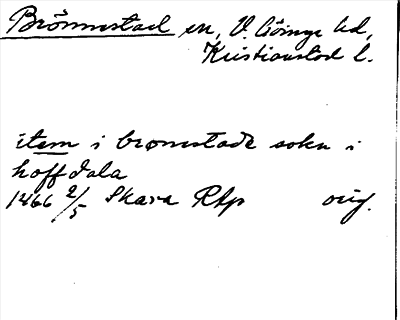 Brönnestad sn, V. Göinge hd,
Kristianstad l.
item i brønnestadæ sokn i
hoffdala
1466 2/5 Skara RAp orig.